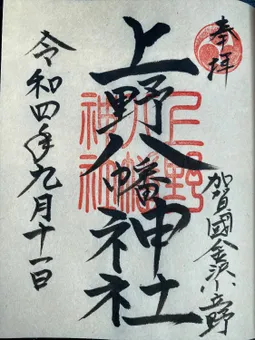 奉拝
加賀國金沢小立野
上野八幡神社
上野八幡神社
令和四年九月十一日